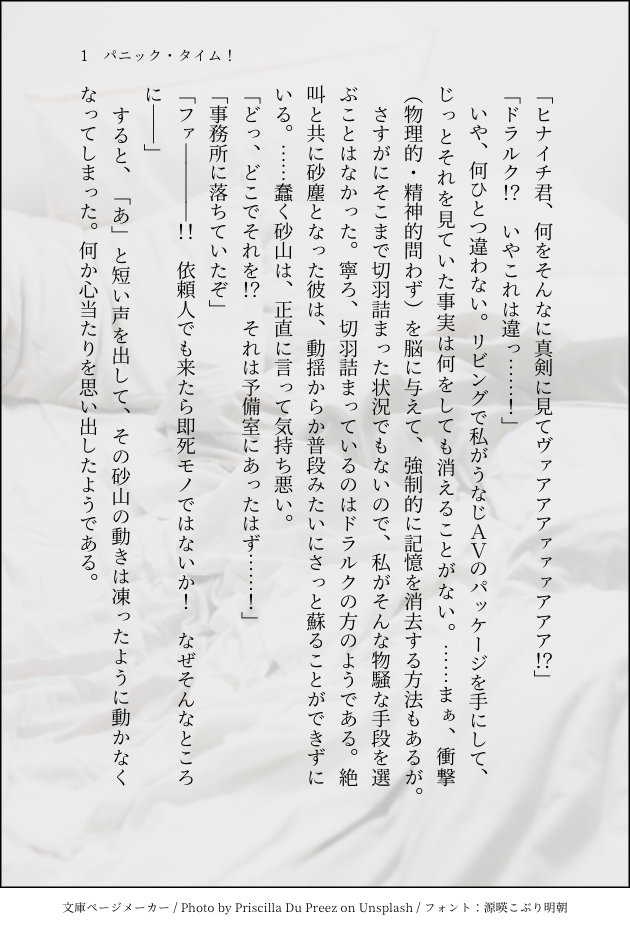 1　パニック・タイム！
「ヒナイチ君、何をそんなに真剣に見てヴァアアアァァアアア!?」
「ドラルク!?　いやこれは違っ……！」
　いや、何ひとつ違わない。リビングで私がうなじＡＶのパッケージを手にして、
じっとそれを見ていた事実は何をしても消えることがない。……まぁ、衝撃
（物理的・精神的問わず）を脳に与えて、強制的に記憶を消去する方法もあるが。
　さすがにそこまで切羽詰まった状況でもないので、私がそんな物騒な手段を選
ぶことはなかった。寧ろ、切羽詰まっているのはドラルクの方のようである。絶
叫と共に砂塵となった彼は、動揺からか普段みたいにさっと蘇ることができずに
いる。……蠢く砂山は、正直に言って気持ち悪い。
「どっ、どこでそれを!?　それは予備室にあったはず……！」
「事務所に落ちていたぞ」
「ファ――――!!　依頼人でも来たら即死モノではないか！　なぜそんなところ
に――」
　すると、「あ」と短い声を出して、その砂山の動きは凍ったように動かなく
なってしまった。何か心当たりを思い出したようである。
文庫ページメーカー / Photo by Priscilla Du Preez on Unsplash / フォント：源暎こぶり明朝